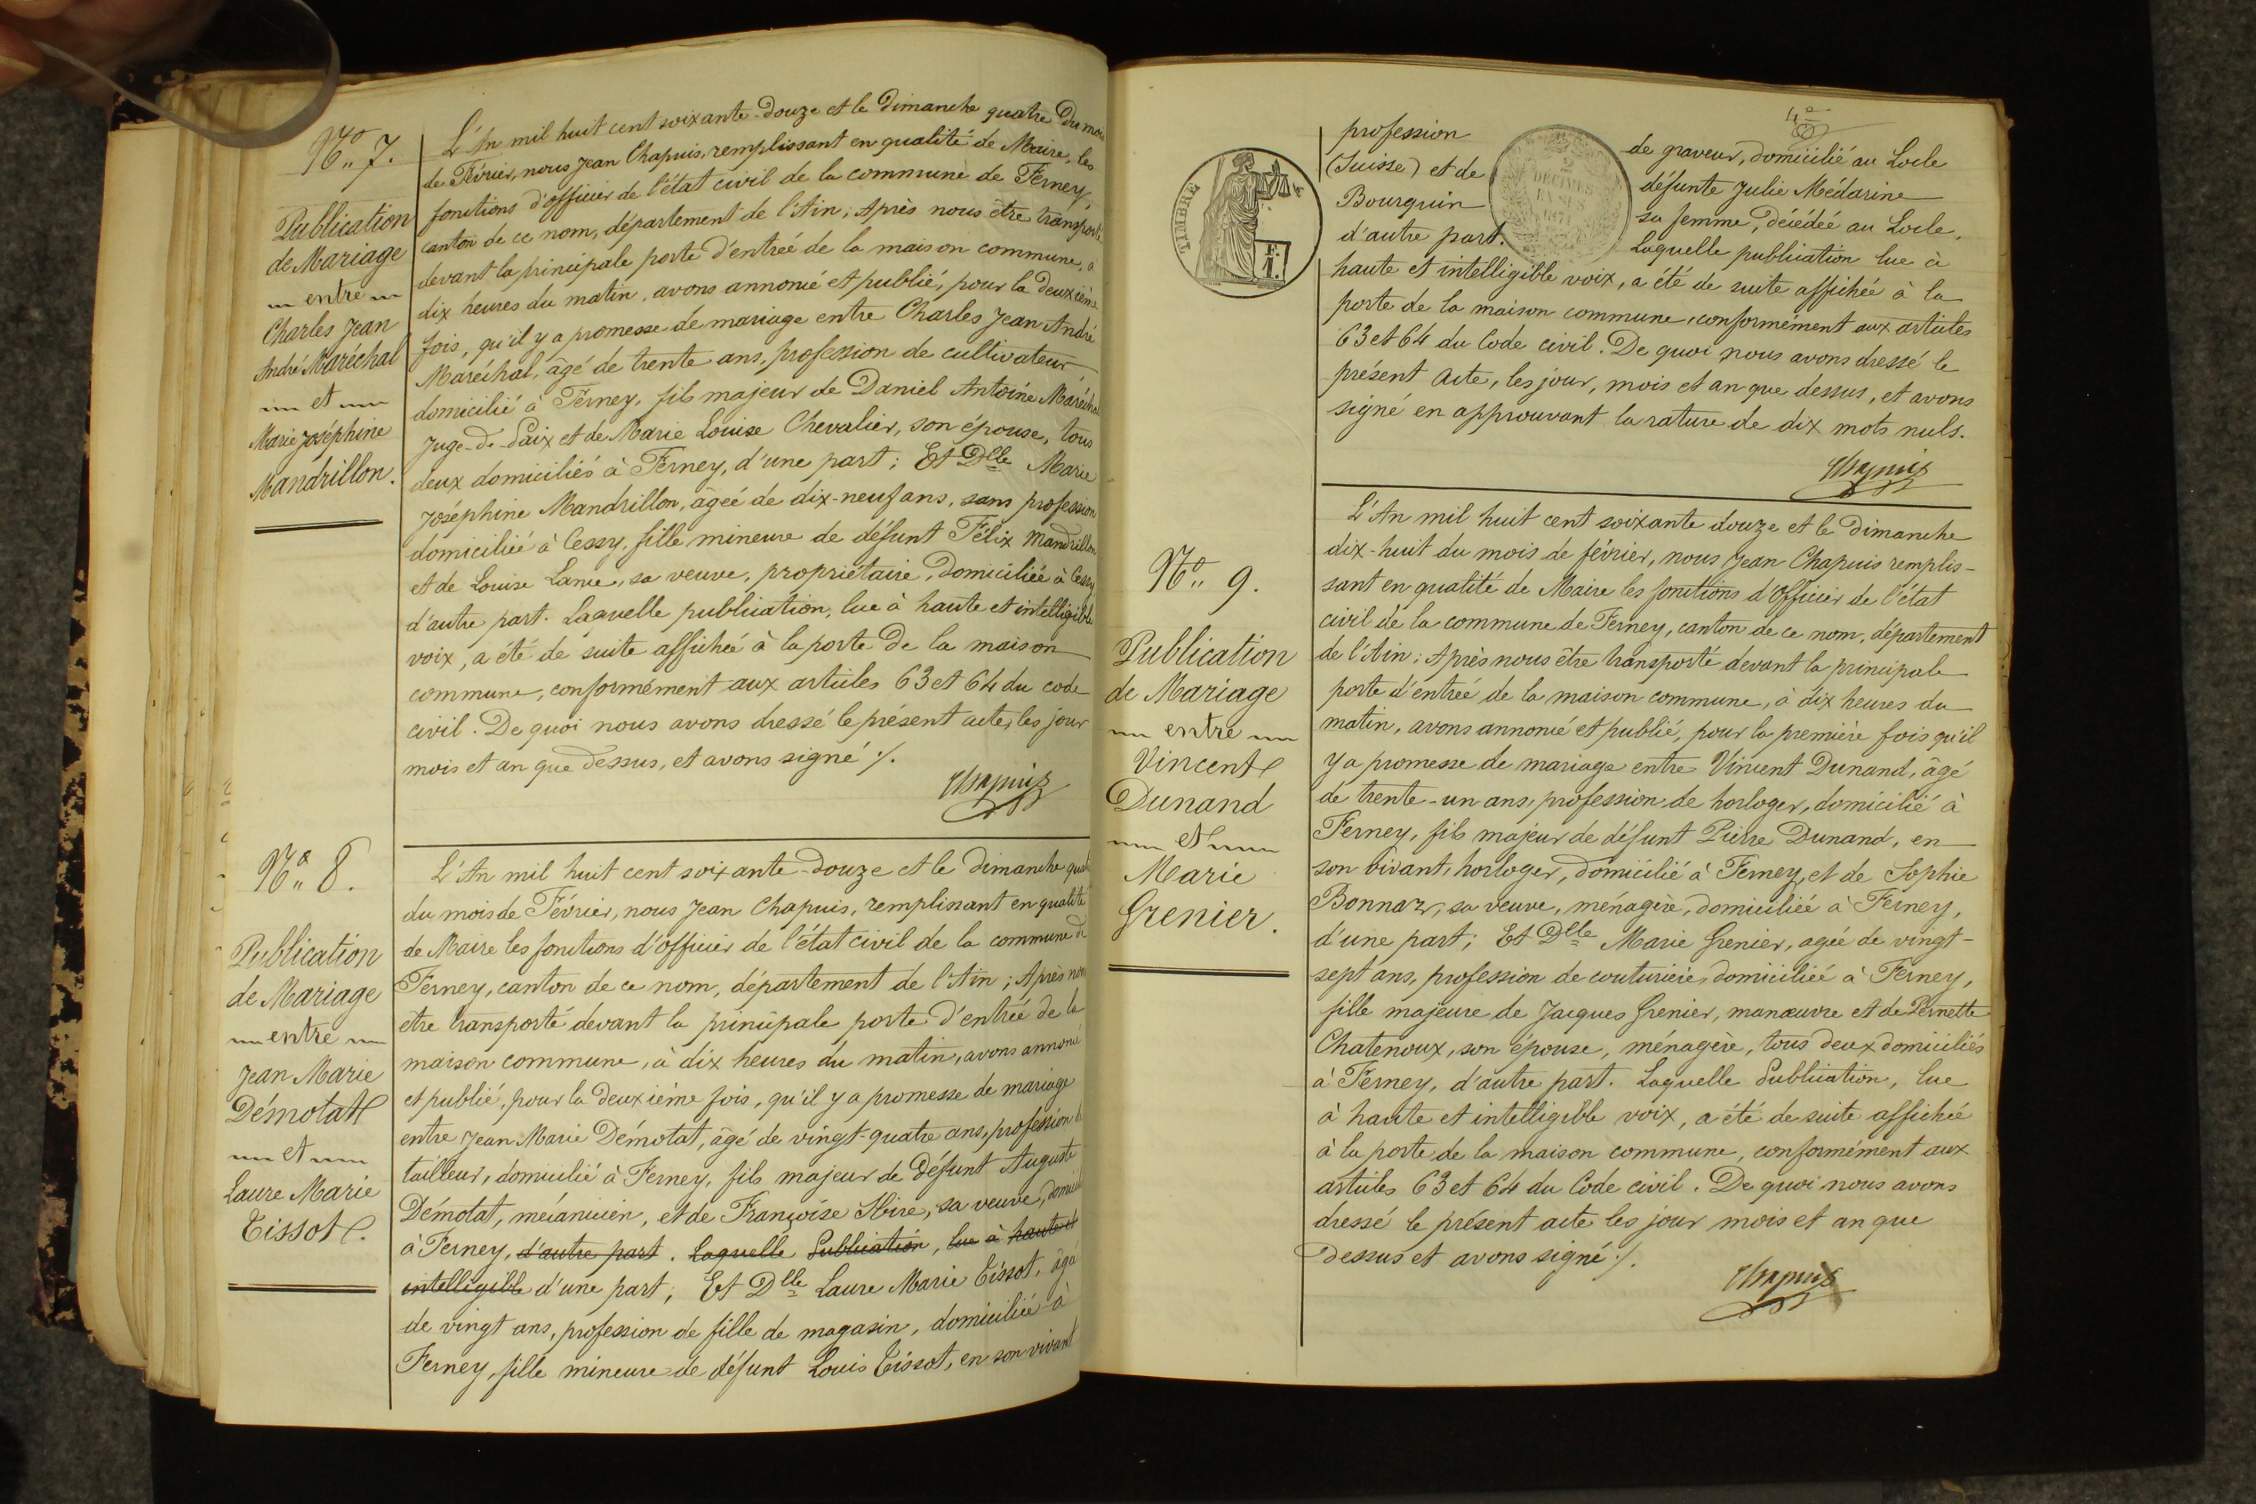 Nº 7.
Publication
de Mariage
entre
Charles Jean
André Maréchal
et
Marie Joséphine
Mandrillon.
L'An mil huit cent soixante-douze et le Dimanche quatre du mois
de Février, nous Jean Chapuis, remplissant en qualité de Maire, les
fonctions d'officier de l'état civil de la commune de Ferney,
canton de ce nom, département de l'Ain; Après nous être transporté
devant la principale porte d'entrée de la maison commune, à
dix heures du matin, avons annoncé et publié, pour la deuxième
fois, qu'il y a promesse de mariage entre Charles Jean André
Maréchal, âgé de trente ans, profession de cultivateur
domicilié à Ferney, fils majeur de Daniel Antoine Maréchal
Juge-de-Paix et de Marie Louise Chevalier, son épouse, tous
deux domiciliés à Ferney, d'une part; Et Dlle Marie
Joséphine Mandrillon, âgée de dix-neuf ans, sans profession
domiciliée à Cessy, fille mineure de défunt Félix Mandrillon
et de Louise Lanve, sa veuve, propriétaire, domiciliée à Cessy
d'autre part. Laquelle publication, lue à haute et intelligible
voix, a été de suite affichée à la porte de la maison
commune, conformément aux articles 63 et 64 du code
civil. De quoi nous avons dressé le présent acte, les jour
mois et an que dessus, et avons signé ./.
Chapuis
Nº 8.
Publication
de Mariage
entre
Jean Marie
Démotat
et
Laure Marie
Tissot.
L'An mil huit cent soixante-douze et le dimanche quatre
du mois de Février, nous Jean Chapuis, remplissant en qualité
de Maire les fonctions d'officier de l'état civil de la commune de
Ferney, canton de ce nom, département de l'Ain; Après nous
être transporté devant la principale porte d'entrée de la
maison commune, à dix heures du matin, avons annoncé
et publié, pour la deuxième fois, qu'il y a promesse de mariage
entre Jean Marie Démotat, âgé de vingt-quatre ans, profession de
tailleur, domicilié à Ferney, fils majeur de défunt Auguste
Démotat, mécanicien, et de Françoise sa veuve,
à Ferney, d'autre part. Laquelle Publication, lue à haute et
intelligible d'une part; Et Dlle Laure Marie Tissot, âgée
de vingt ans, profession de fille de magasin, domiciliée à
Ferney, fille mineure de défunt Louis Tissot, en son vivant
4e
TIMBRE
F. I.
2
DECIMES
EN SUS
1871
profession de graveur, domicilié au Locle
(Suisse) et de défunte Julie Médarine
Bourquin sa femme, décédée au Locle,
d'autre part. Laquelle publication lue à
haute et intelligible voix, a été de suite affichée à la
porte de la maison commune, conformément aux articles
63 et 64 du Code civil. De quoi nous avons dressé le
présent Acte, les jour, mois et an que dessus, et avons
signé en approuvant la rature de dix mots nuls.
Chapuis
Nº 9.
Publication
de Mariage
entre
Vincent
Dunand
et
Marie
Grenier.
L'An mil huit cent soixante douze et le Dimanche
dix-huit du mois de février, nous Jean Chapuis remplis-
sant en qualité de Maire les fonctions d'Officier de l'état
civil de la commune de Ferney, canton de ce nom, département
de l'Ain; Après nous être transporté devant la principale
porte d'entrée de la maison commune, à dix heures du
matin, avons annoncé et publié, pour la première fois qu'il
y a promesse de mariage entre Vincent Dunand, âgé
de trente-un ans, profession de horloger, domicilié à
Ferney, fils majeur de défunt Pierre Dunand, en
son vivant, horloger, domicilié à Ferney, et de Sophie
Bonnaz, sa veuve, ménagère, domiciliée à Ferney,
d'une part; Et Dlle Marie Grenier, agée de vingt-
sept ans, profession de couturière, domiciliée à Ferney,
fille majeure de Jacques Grenier, manœuvre et de Pernette
Chatenoux, son épouse, ménagère, tous deux domiciliés
à Ferney, d'autre part. Laquelle Publication, lue
à haute et intelligible voix, a été de suite affichée
à la porte de la maison commune, conformément aux
articles 63 et 64 du Code civil. De quoi nous avons
dressé le présent acte les jour mois et an que
dessus et avons signé ./.
Chapuis